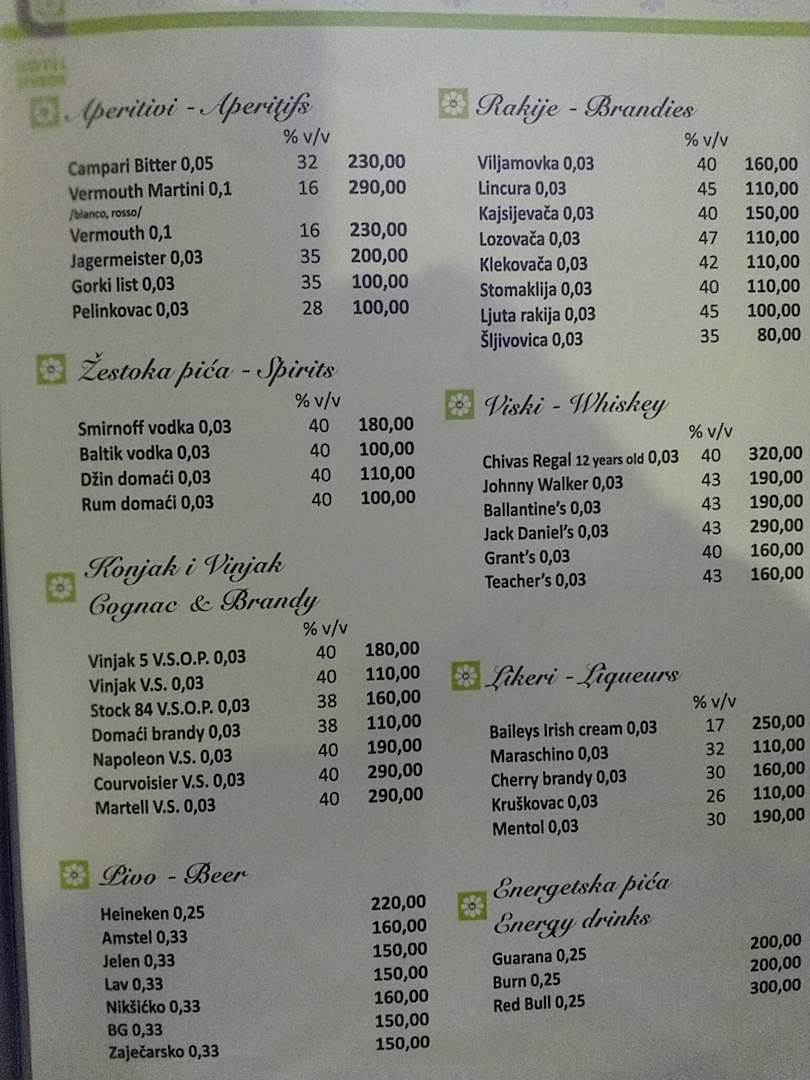 Aperitivi - Aperitifs
% v/v
Campari Bitter 0,05 32 230,00
Vermouth Martini 0,1 16 290,00
/blanco, rosso/
Vermouth 0,1 16 230,00
Jagermeister 0,03 35 200,00
Gorki list 0,03 35 100,00
Pelinkovac 0,03 28 100,00
Žestoka pića - Spirits
% v/v
Smirnoff vodka 0,03 40 180,00
Baltik vodka 0,03 40 100,00
Džin domaći 0,03 40 110,00
Rum domaći 0,03 40 100,00
Konjak i Vinjak
Cognac & Brandy
% v/v
Vinjak 5 V.S.O.P. 0,03 40 180,00
Vinjak V.S. 0,03 40 110,00
Stock 84 V.S.O.P. 0,03 38 160,00
Domaći brandy 0,03 38 110,00
Napoleon V.S. 0,03 40 190,00
Courvoisier V.S. 0,03 40 290,00
Martell V.S. 0,03 40 290,00
Pivo - Beer
Heineken 0,25 220,00
Amstel 0,33 160,00
Jelen 0,33 150,00
Lav 0,33 150,00
Nikšićko 0,33 160,00
BG 0,33 150,00
Zaječarsko 0,33 150,00
Rakije - Brandies
% v/v
Viljamovka 0,03 40 160,00
Lincura 0,03 45 110,00
Kajsijevača 0,03 40 150,00
Lozovača 0,03 47 110,00
Klekovača 0,03 42 110,00
Stomaklija 0,03 40 110,00
Ljuta rakija 0,03 45 100,00
Šljivovica 0,03 35 80,00
Viski - Whiskey
% v/v
Chivas Regal 12 years old 0,03 40 320,00
Johnny Walker 0,03 43 190,00
Ballantine's 0,03 43 190,00
Jack Daniel's 0,03 43 290,00
Grant's 0,03 40 160,00
Teacher's 0,03 43 160,00
Likeri - Liqueurs
% v/v
Baileys Irish cream 0,03 17 250,00
Maraschino 0,03 32 110,00
Cherry brandy 0,03 30 160,00
Kruškovac 0,03 26 110,00
Mentol 0,03 30 190,00
Energetska pića
Energy drinks
Guarana 0,25 200,00
Burn 0,25 200,00
Red Bull 0,25 300,00